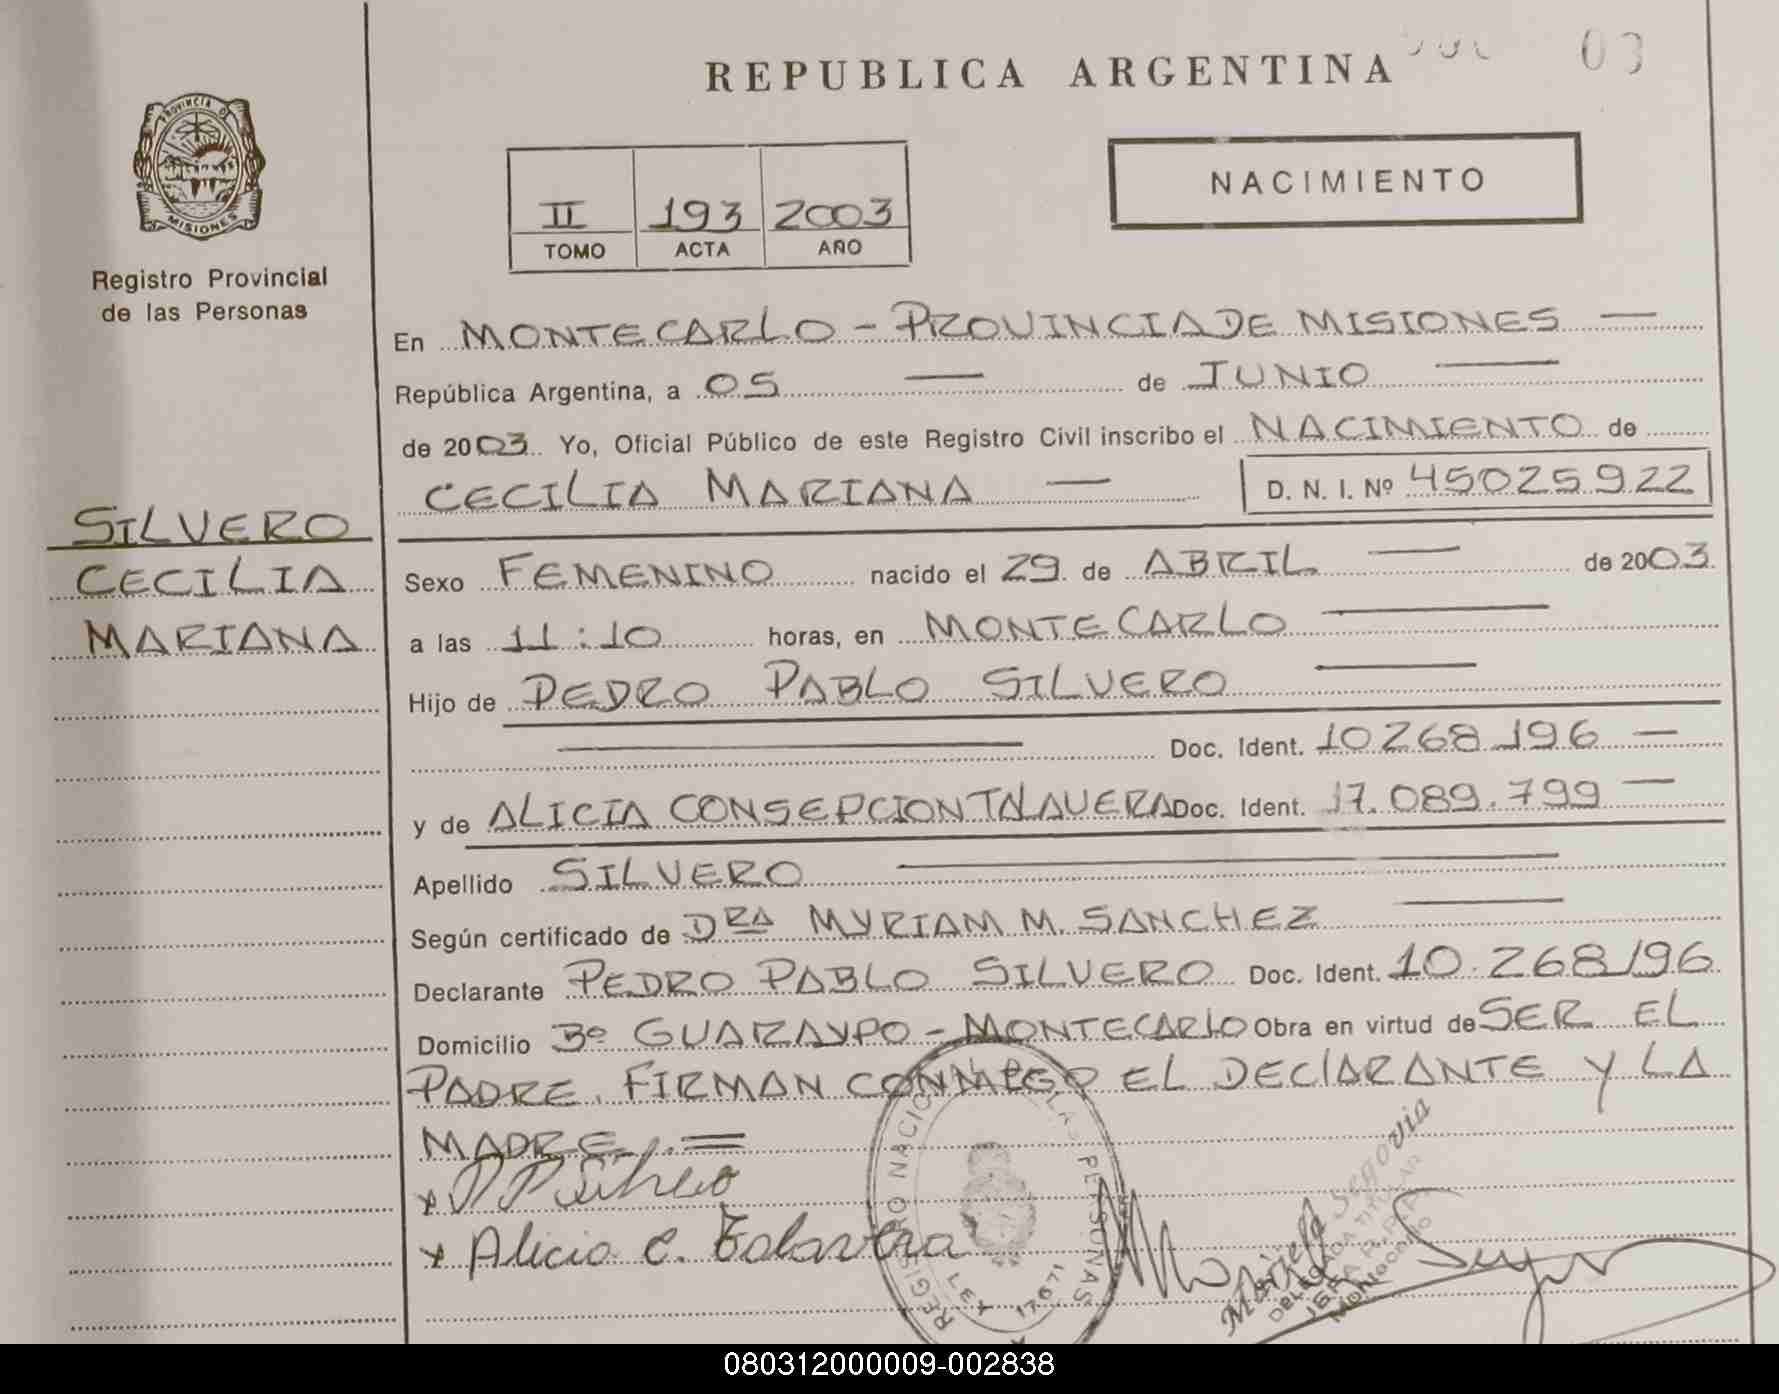 REPUBLICA ARGENTINA
03
PROVINCIA DE
MISIONES
Registro Provincial
de las Personas
II 193 2003
TOMO ACTA AÑO
NACIMIENTO
En MONTECARLO - PROVINCIA DE MISIONES —
República Argentina, a 05 — de JUNIO —
de 2003. Yo, Oficial Público de este Registro Civil inscribo el NACIMIENTO de
CECILIA MARIANA — D. N. I. Nº 45025922
SILVERO
CECILIA
MARIANA
Sexo FEMENINO nacido el 29 de ABRIL — de 2003
a las 11:10 horas, en MONTECARLO —
Hijo de PEDRO PABLO SILVERO —
— Doc. Ident. 10268196 —
y de ALICIA CONSEPCION TALAVERA Doc. Ident. 17.089.799 —
Apellido SILVERO —
Según certificado de DRA MYRIAM M. SANCHEZ —
Declarante PEDRO PABLO SILVERO Doc. Ident. 10.268196
Domicilio Bº GUARAYPO - MONTECARLO Obra en virtud de SER EL
PADRE. FIRMAN CONMIGO EL DECLARANTE Y LA
MADRE.=
x P P Silvero
x Alicia C. Talavera
REGISTRO NACIONAL DE LAS PERSONAS
LEY 17671
Mariela Segovia
DELEGADA TITULAR
JEFA R.P.P.
Montecarlo
080312000009-002838